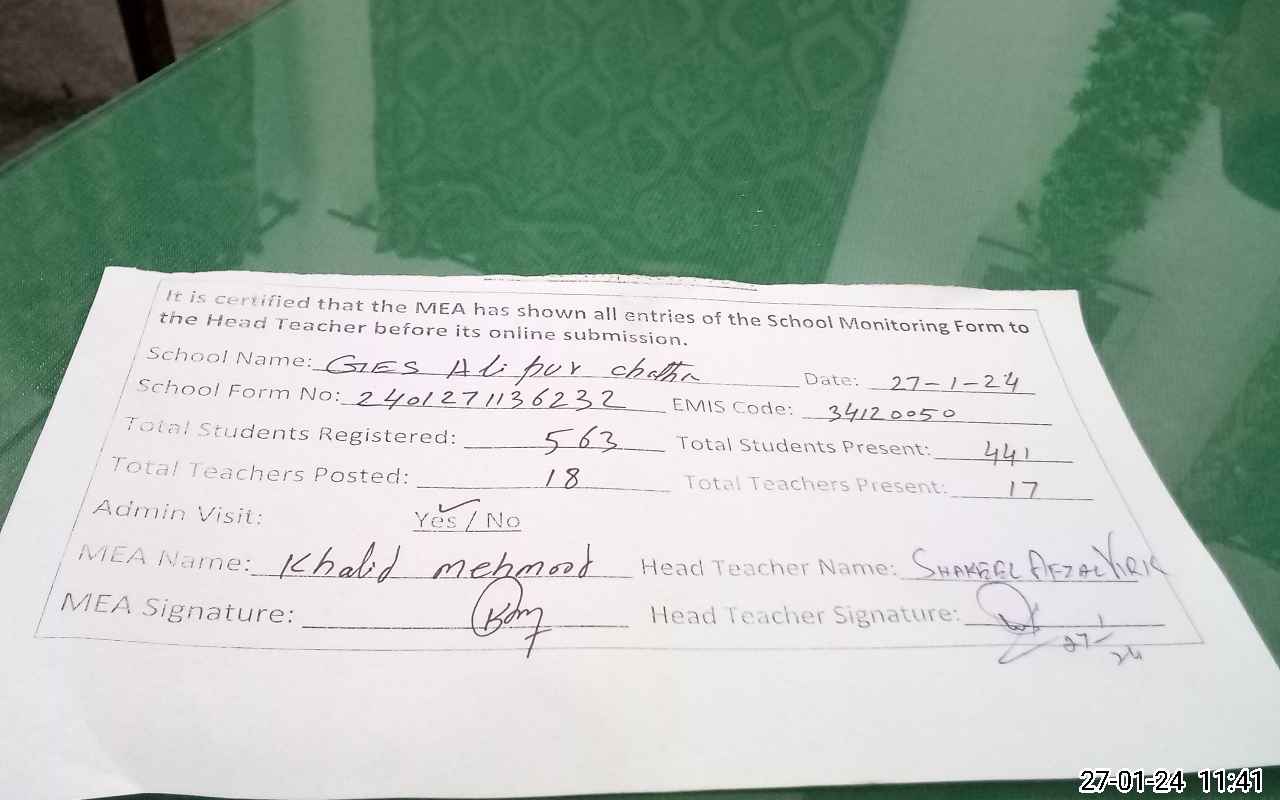 It is certified that the MEA has shown all entries of the School Monitoring Form to
the Head Teacher before its online submission.
School Name: GES Ali pur chatha Date: 27-1-24
School Form No: 2401271136232 EMIS Code: 34120050
Total Students Registered: 563 Total Students Present: 441
Total Teachers Posted: 18 Total Teachers Present: 17
Admin Visit: Yes / No
MEA Name: Khalid mehmood Head Teacher Name: SHAKEEL AFZAL VIRK
MEA Signature: Head Teacher Signature:
27-01-24 11:41